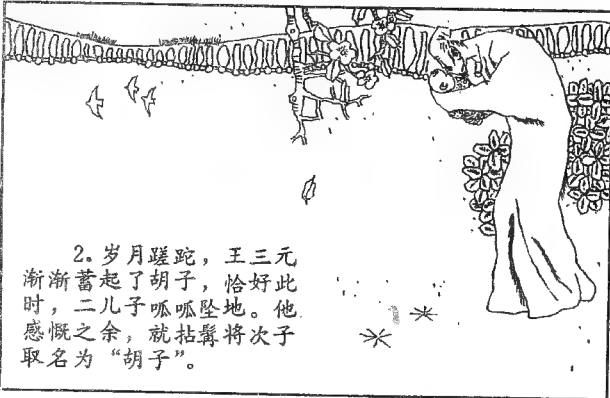 2。岁月蹉跎，王三元
渐渐蓄起了胡子，恰好此
时，二儿子呱呱坠地。他
感慨之余，就拈髯将次子
取名为“胡子”。